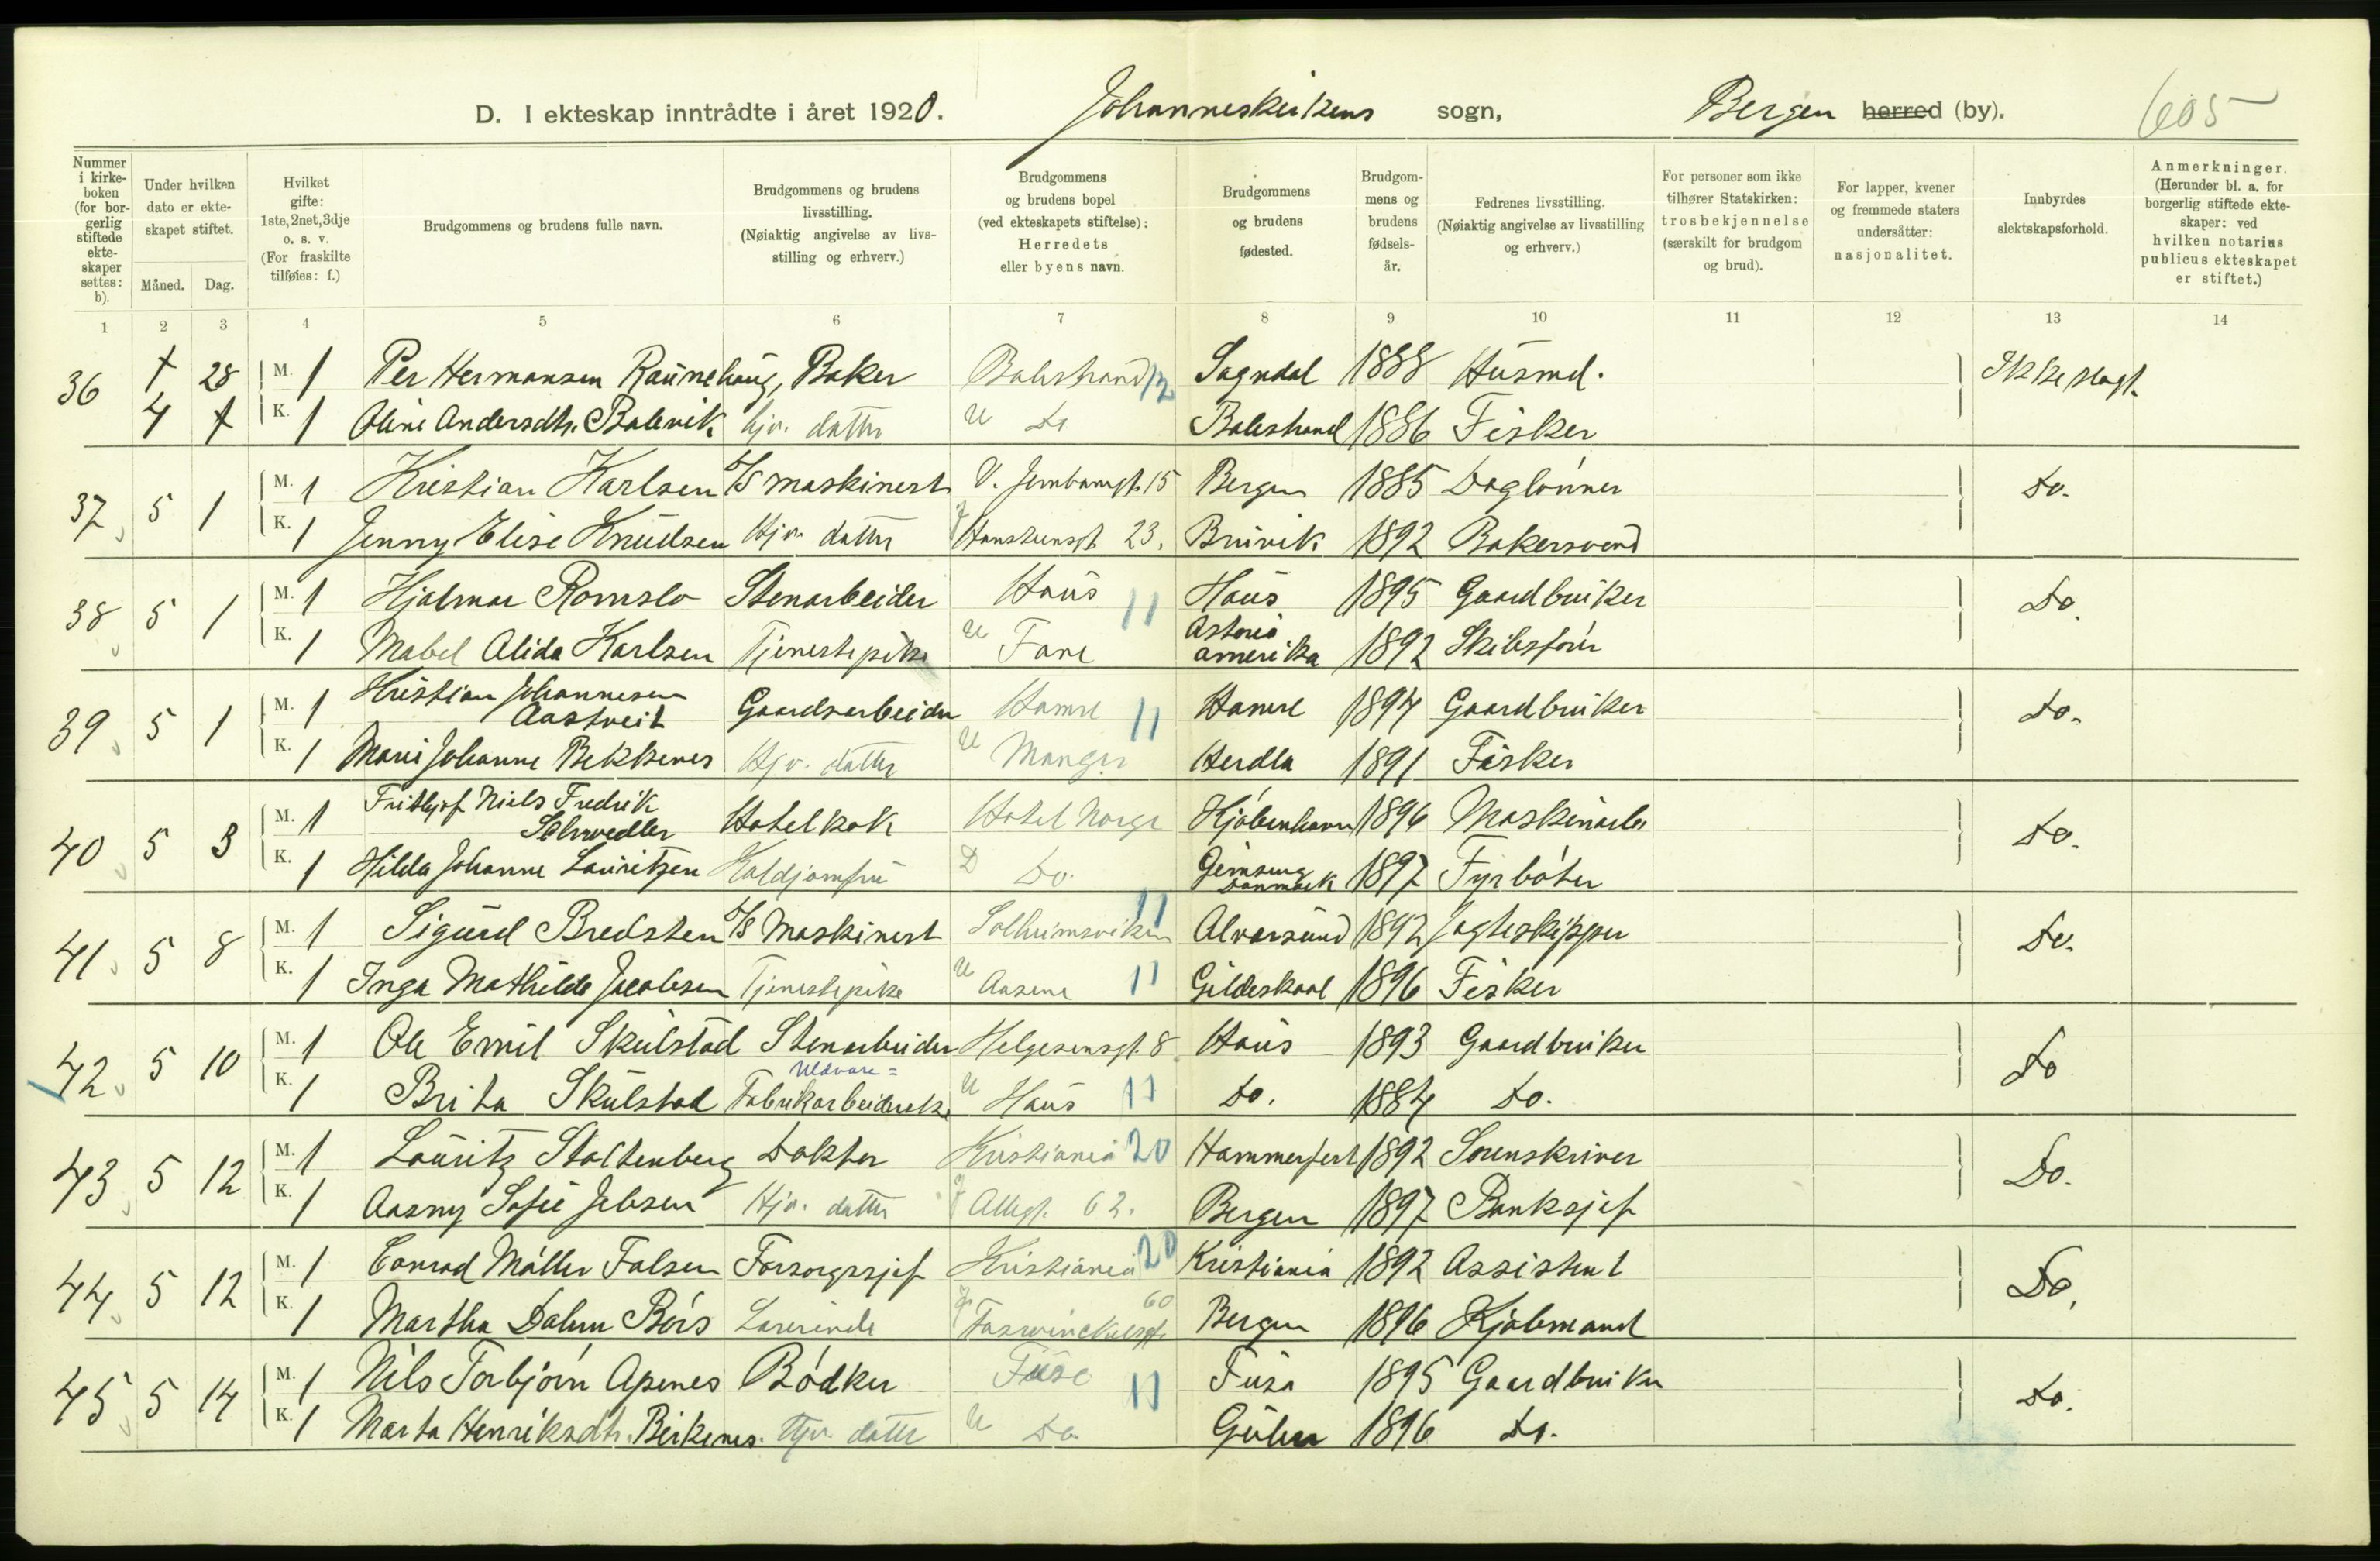 D. I ekteskap inntrådte i året 1920. Johanneskirkens sogn, Bergen herred (by). 605
Nummer i kirkeboken (for borgerlig stiftede ekteskaper settes: b).
Under hvilken dato er ekteskapet stiftet.
Måned. Dag.
Hvilket gifte: 1ste, 2net, 3dje o. s. v. (For fraskilte tilføies: f.)
Brudgommens og brudens fulle navn.
Brudgommens og brudens livsstilling. (Nøiaktig angivelse av livsstilling og erhverv.)
Brudgommens og brudens bopel (ved ekteskapets stiftelse): Herredets eller byens navn.
Brudgommens og brudens fødested.
Brudgommens og brudens fødselsår.
Fedrenes livsstilling. (Nøiaktig angivelse av livsstilling og erhverv.)
For personer som ikke tilhører Statskirken: trosbekjennelse (særskilt for brudgom og brud).
For lapper, kvener og fremmede staters undersåtter: nasjonalitet.
Innbyrdes slektskapsforhold.
Anmerkninger. (Herunder bl. a. for borgerlig stiftede ekteskaper: ved hvilken notarius publicus ekteskapet er stiftet.)
1 2 3 4 5 6 7 8 9 10 11 12 13 14
36 28 M. 1 Per Hermansen Raunehaug, Baker Balestrand 12 Sogndal 1888 Husmd. Ikke slagt.
4 K. 1 Oline Andersdtr. Balevik hjv. datter U Do Balestrand 1886 Fisker
37 5 1 M. 1 Kristian Karlsen D/S maskinest V. Jernbanegt. 15 Bergen 1885 Daglønner Do.
K. 1 Jenny Elise Knudsen Hjv. datter Hansteensgt. 23. Bruvik 1892 Bakersvend
38 5 1 M. 1 Hjalmar Romslo Stenarbeider Haus 11 Haus 1895 Gaardbruker Do.
K. 1 Mabel Alida Karlsen Tjenestepike U Fane Astoria Amerika 1892 Skibsfører
39 5 1 M. 1 Kristian Johannesen Aastveit Gaardsarbeider Hamre 11 Hamre 1894 Gaardbruker Do.
K. 1 Marie Johanne Bekkenes Hjv. datter U Manger Herdla 1891 Fisker
40 5 3 M. 1 Frithjof Niels Fredrik Schwedler Hotelkok Hotel Norge Kjøbenhavn 1896 Maskinarb. Do.
K. 1 Hilda Johanne Lauritzen Koldjomfru D Do. Danmark 1897 Fyrbøter
41 5 8 M. 1 Sigurd Bredsten D/S Maskinest Solheimsviken 11 Alversund 1892 Jagteskipper Do.
K. 1 Inga Mathilde Jacobsen Tjenestepike U Aasene 11 Gildeskaal 1896 Fisker
42 5 10 M. 1 Ole Emil Skulstad Stenarbeider Helgesensgt. 8 Haus 1893 Gaardbruker Do
K. 1 Brita Skulstad Uldvare= Fabrikarbeiderske U Haus 11 Do. 1884 Do.
43 5 12 M. 1 Lauritz Stoltenberg Doktor Kristiania 20 Hammerfest 1892 Sorenskriver Do.
K. 1 Aasny Sofie Jebsen Hjv. datter Allegt. 62. Bergen 1897 Banksjef
44 5 12 M. 1 Conrad Møller Falsen Forsorgssjef Kristiania 20 Kristiania 1892 Assistent Do.
K. 1 Martha Dahm Børs Lærerinde Fosswinckelsgt. 60 Bergen 1896 Kjøbmand
45 5 14 M. 1 Nils Torbjørn Apenes Bødker Fuse 11 Fusa 1895 Gaardbruker Do.
K. 1 Marta Henriksdtr. Birkenes. Hjv. datter U Do. Gulen 1896 Do.